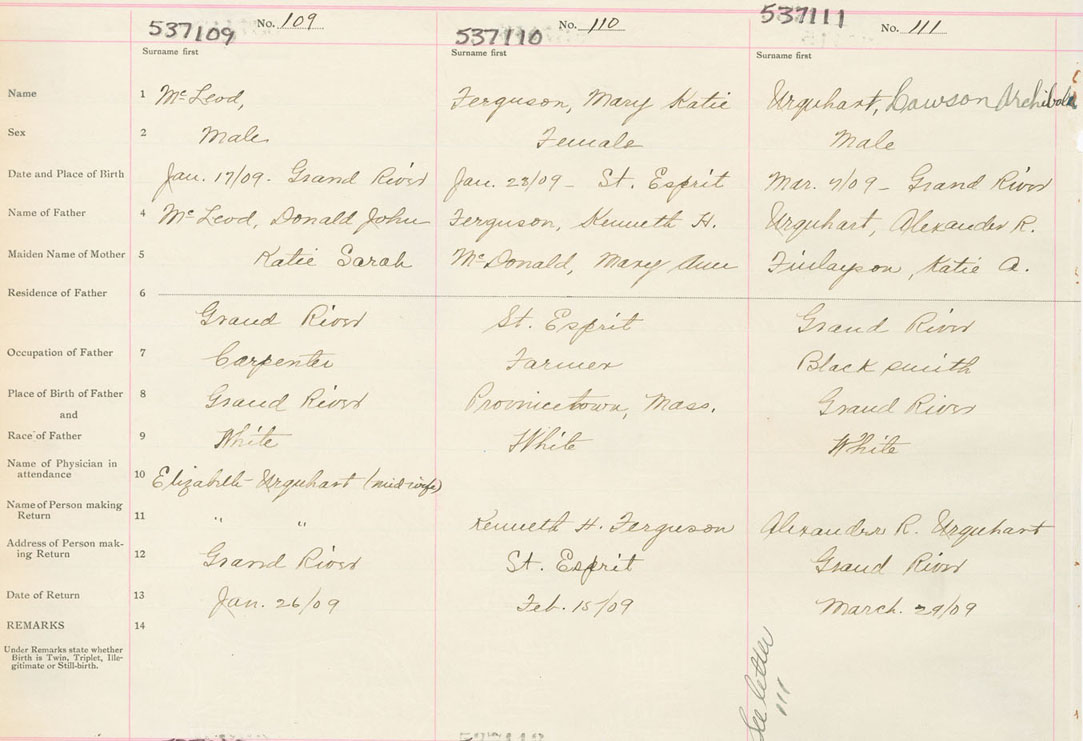 537109 No. 109 537110 No. 110 537111 No. 111
Surname first Surname first Surname first
Name 1 McLeod, Ferguson, Mary Katie Urquhart, Lawson Archibald
Sex 2 Male Female Male
Date and Place of Birth Jan. 17/09 - Grand River Jan. 28/09 - St. Esprit Mar. 7/09 - Grand River
Name of Father 4 McLeod, Donald John Ferguson, Kenneth H. Urquhart, Alexander R.
Maiden Name of Mother 5 Katie Sarah McDonald, Mary Ann Finlayson, Katie A.
Residence of Father 6
Grand River St. Esprit Grand River
Occupation of Father 7 Carpenter Farmer Black smith
Place of Birth of Father 8 Grand River Provincetown, Mass. Grand River
and
Race of Father 9 White White White
Name of Physician in
attendance 10 Elizabeth Urquhart (midwife)
Name of Person making
Return 11 " " Kenneth H. Ferguson Alexander R. Urquhart
Address of Person mak-
ing Return 12 Grand River St. Esprit Grand River
Date of Return 13 Jan. 26/09 Feb. 15/09 March. 29/09
REMARKS 14
Under Remarks state whether
Birth is Twin, Triplet, Ille-
gitimate or Still-birth.
See letter
111